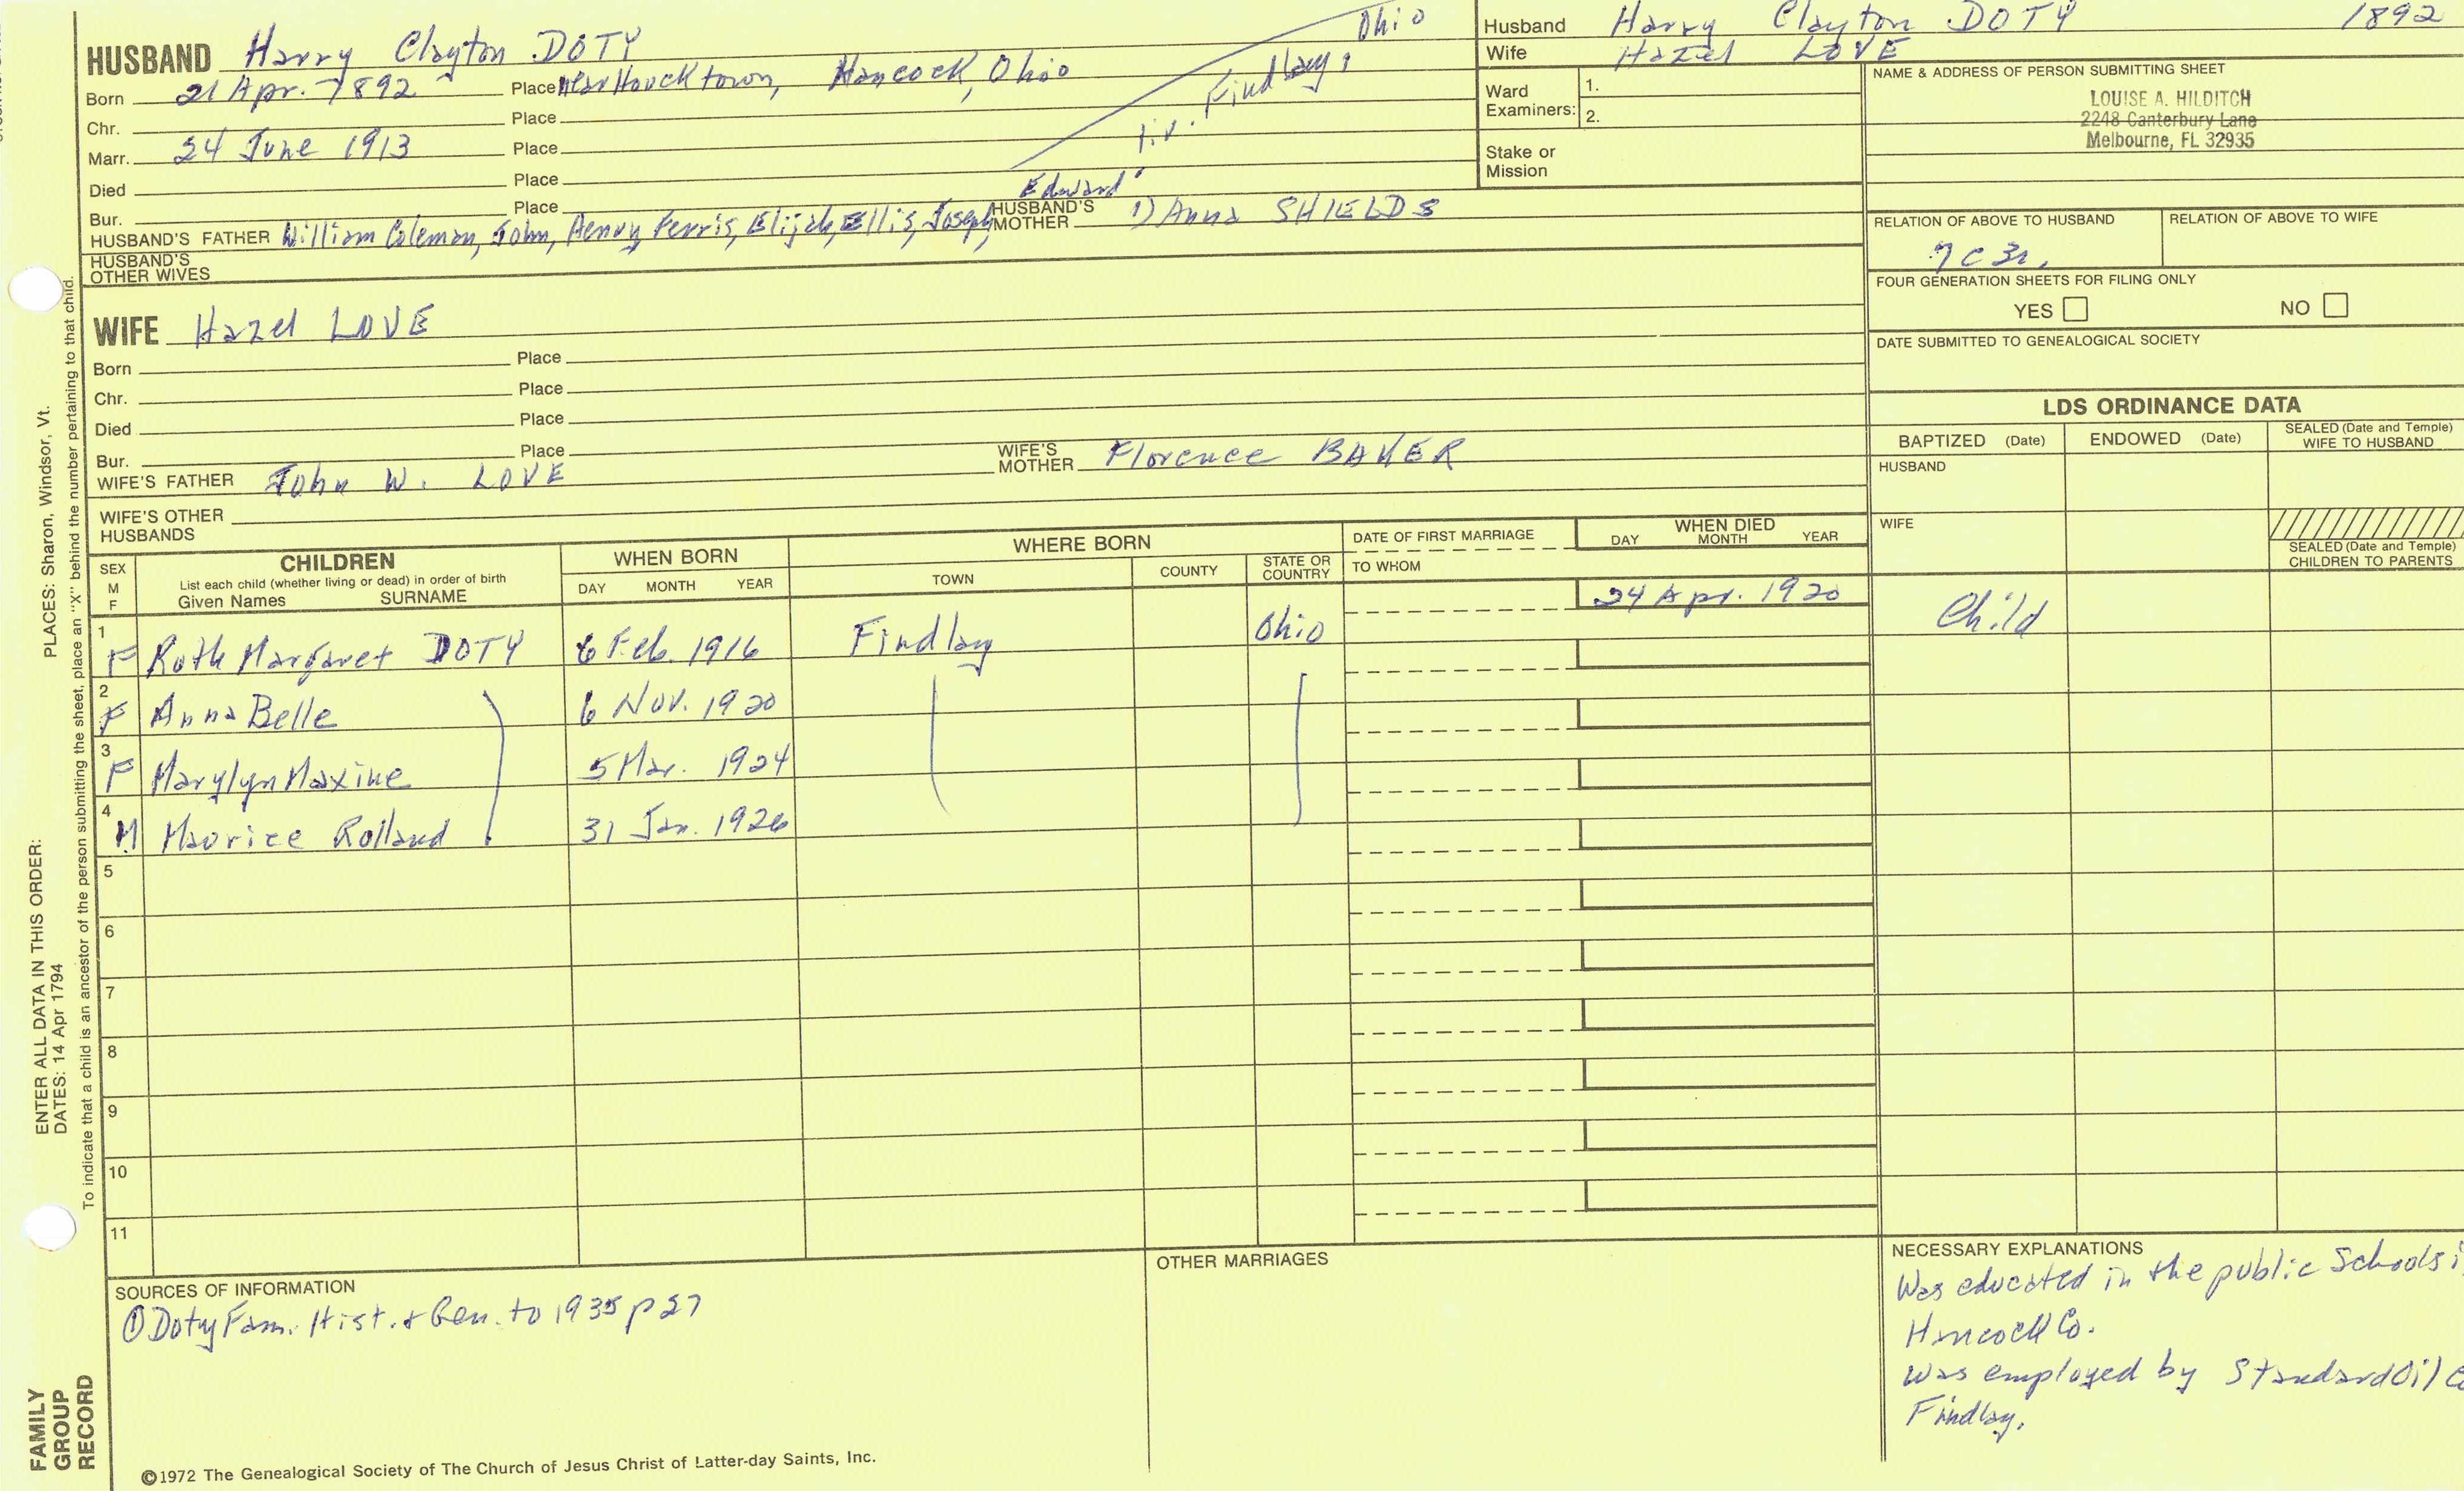 Husband Harry Clayton DOTY 1892
Wife Hazel LOVE
HUSBAND Harry Clayton DOTY
Born 21 Apr. 1892 Place near Houcktown, Hancock, Ohio
Chr. Place
Marr. 24 June 1913 Place
Died Place
Bur. Place
liv. Findlay, Ohio
Edward
HUSBAND'S FATHER William Coleman, John, Henry, Ferris, Elijah, Ellis, Joseph, HUSBAND'S MOTHER 1) Anna SHIELDS
HUSBAND'S OTHER WIVES
Ward Examiners: 1.
2.
Stake or Mission
NAME & ADDRESS OF PERSON SUBMITTING SHEET
LOUISE A. HILDITCH
2248 Canterbury Lane
Melbourne, FL 32935
RELATION OF ABOVE TO HUSBAND RELATION OF ABOVE TO WIFE
7C3r.
FOUR GENERATION SHEETS FOR FILING ONLY
YES NO
DATE SUBMITTED TO GENEALOGICAL SOCIETY
WIFE Hazel LOVE
Born Place
Chr. Place
Died Place
Bur. Place
WIFE'S FATHER John W. LOVE WIFE'S MOTHER Florence BAKER
WIFE'S OTHER HUSBANDS
LDS ORDINANCE DATA
BAPTIZED (Date) ENDOWED (Date) SEALED (Date and Temple) WIFE TO HUSBAND
HUSBAND
WIFE
SEALED (Date and Temple) CHILDREN TO PARENTS
SEX M F CHILDREN List each child (whether living or dead) in order of birth Given Names SURNAME WHEN BORN DAY MONTH YEAR WHERE BORN TOWN COUNTY STATE OR COUNTRY DATE OF FIRST MARRIAGE TO WHOM WHEN DIED DAY MONTH YEAR
1 F Ruth Margaret DOTY 6 Feb. 1916 Findlay Ohio 24 Apr. 1920 Child
2 F Anna Belle 6 Nov. 1920
3 F Marylyn Maxine 5 Mar. 1924
4 M Maurice Rolland 31 Jan. 1926
5
6
7
8
9
10
11
SOURCES OF INFORMATION
① Doty Fam. Hist. & Gen. to 1935 p 27
OTHER MARRIAGES
NECESSARY EXPLANATIONS
Was educated in the public schools
Hancock Co.
Was employed by Standard Oil
Findlay.
©1972 The Genealogical Society of The Church of Jesus Christ of Latter-day Saints, Inc.
FAMILY GROUP RECORD
ENTER ALL DATA IN THIS ORDER:
DATES: 14 Apr 1794 PLACES: Sharon, Windsor, Vt.
To indicate that a child is an ancestor of the person submitting the sheet, place an "X" behind the number pertaining to that child.